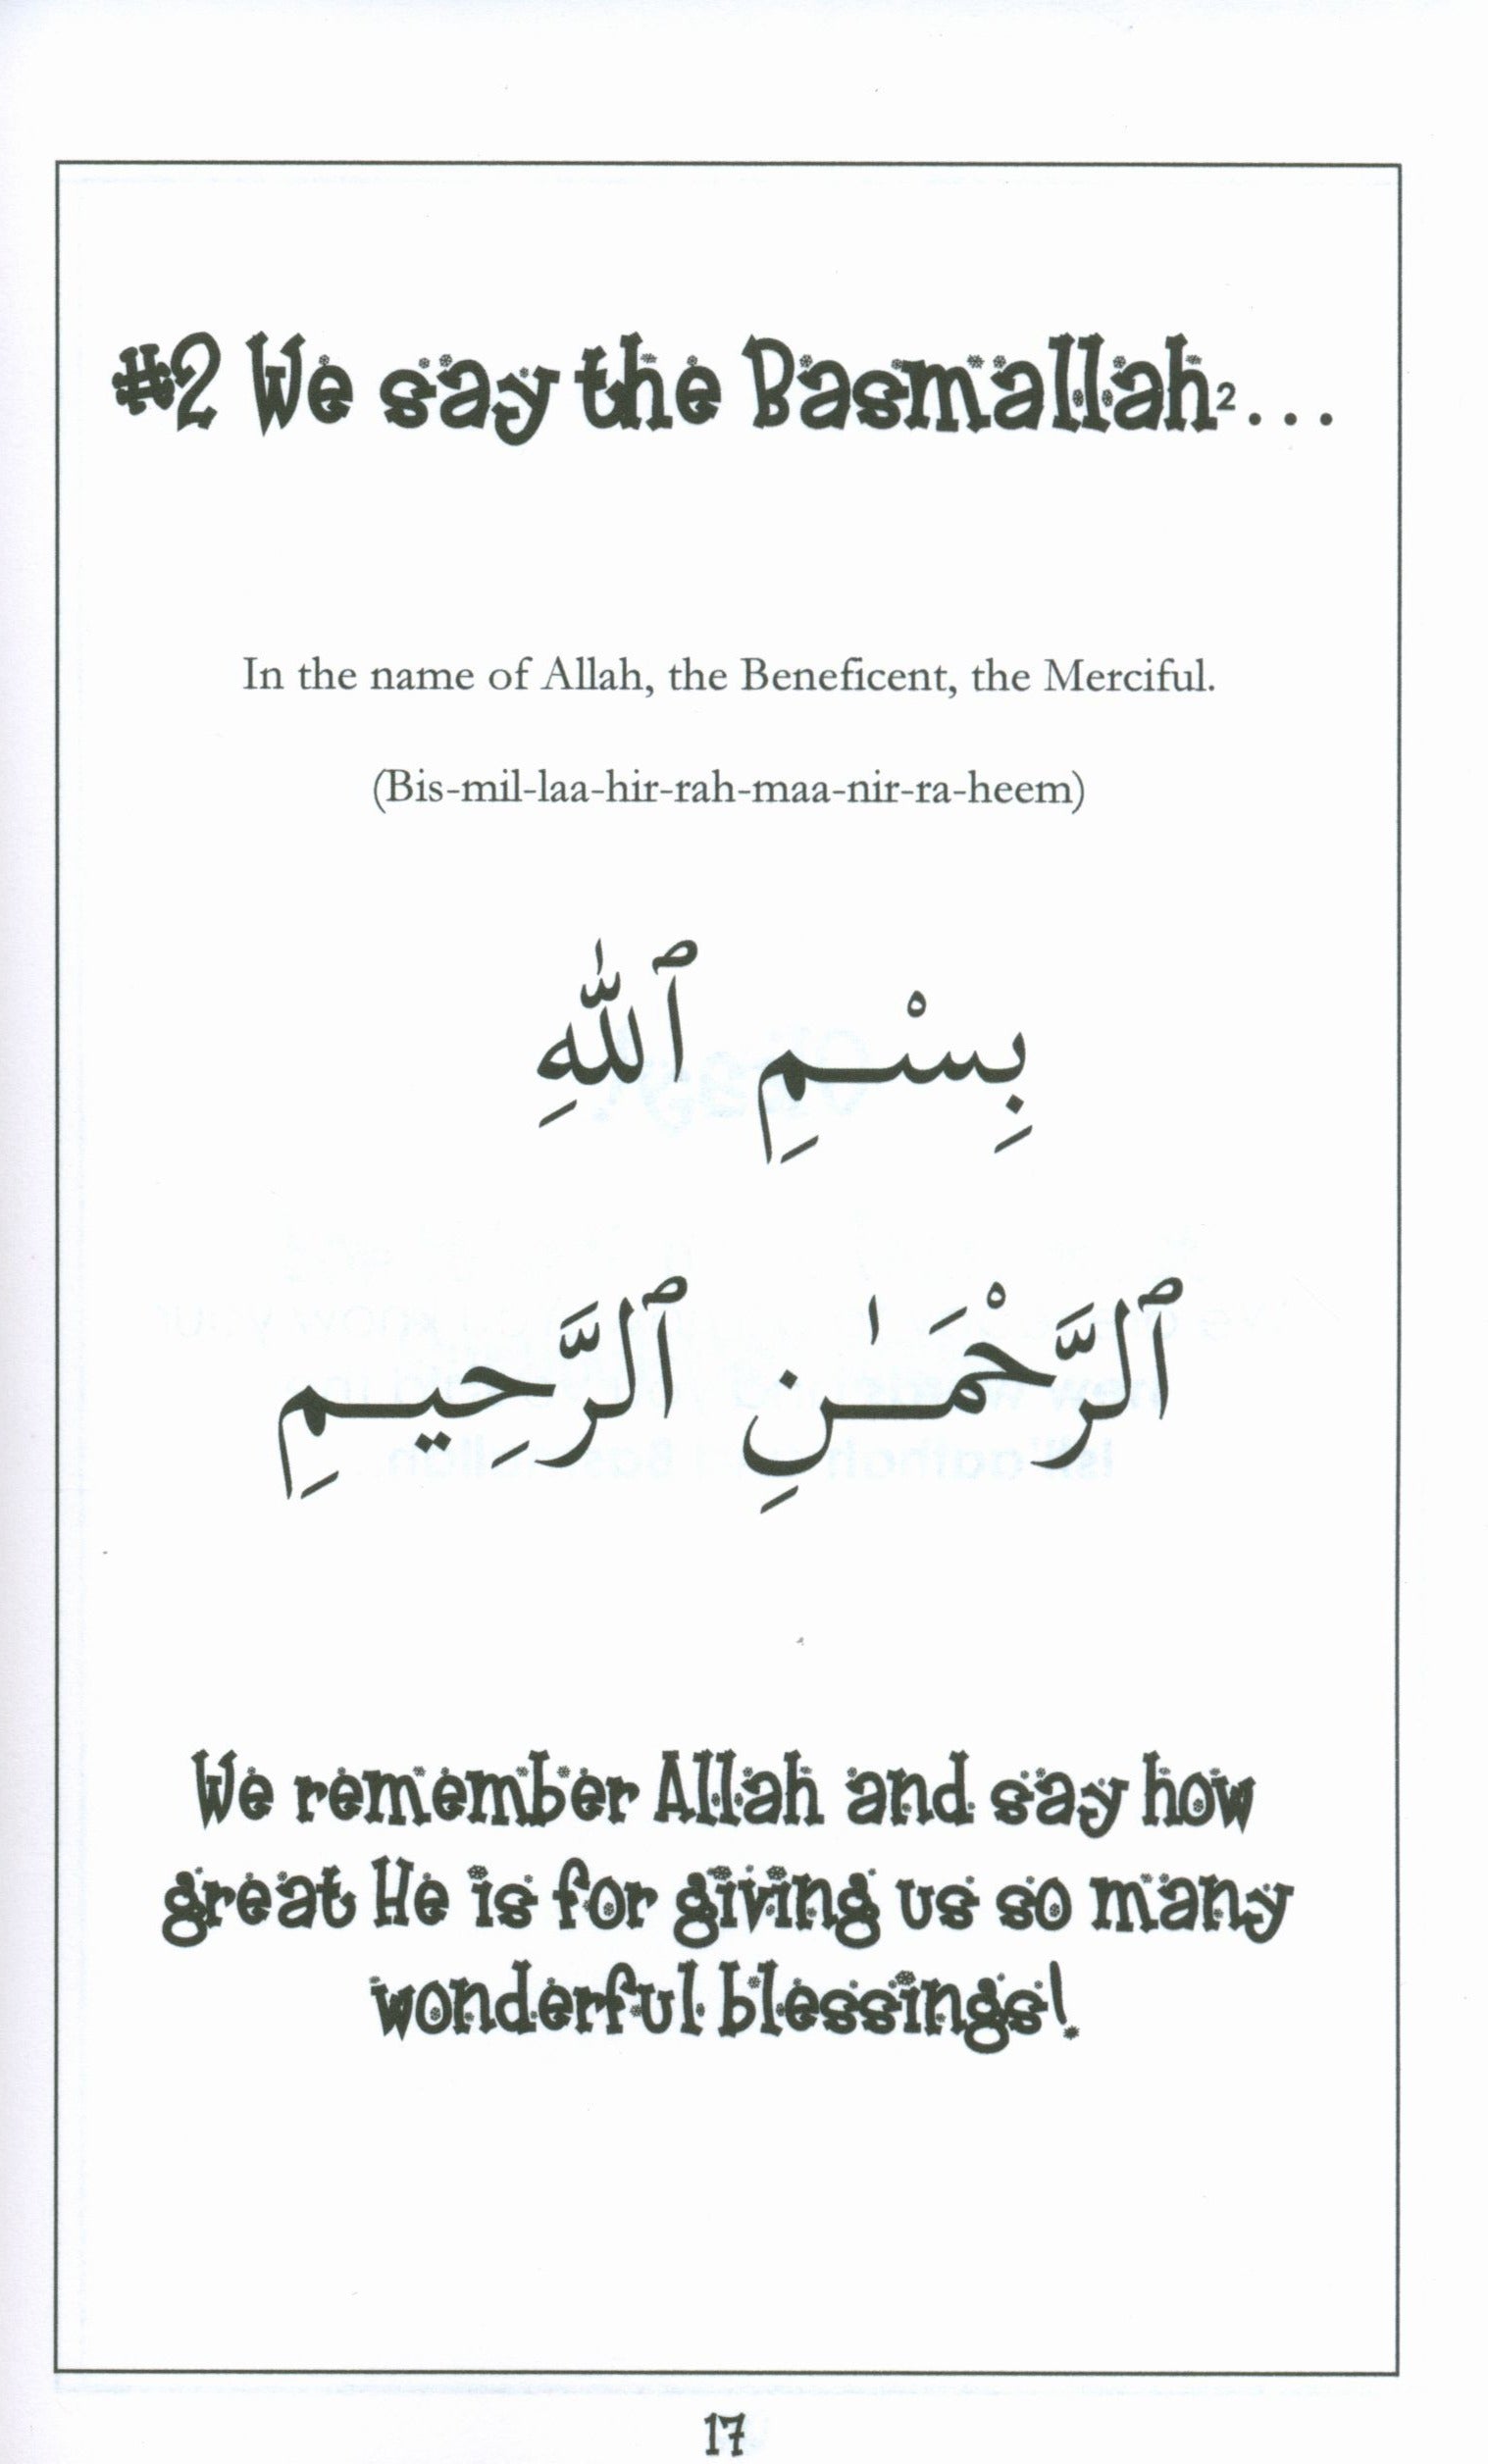 #2 We say the Basmallah²...
In the name of Allah, the Beneficent, the Merciful.
(Bis-mil-laa-hir-rah-maa-nir-ra-heem)
بِسْــمِ ٱللَّهِ
ٱلرَّحْمَـٰـنِ ٱلرَّحِيــمِ
We remember Allah and say how
great He is for giving us so many
wonderful blessings!
17